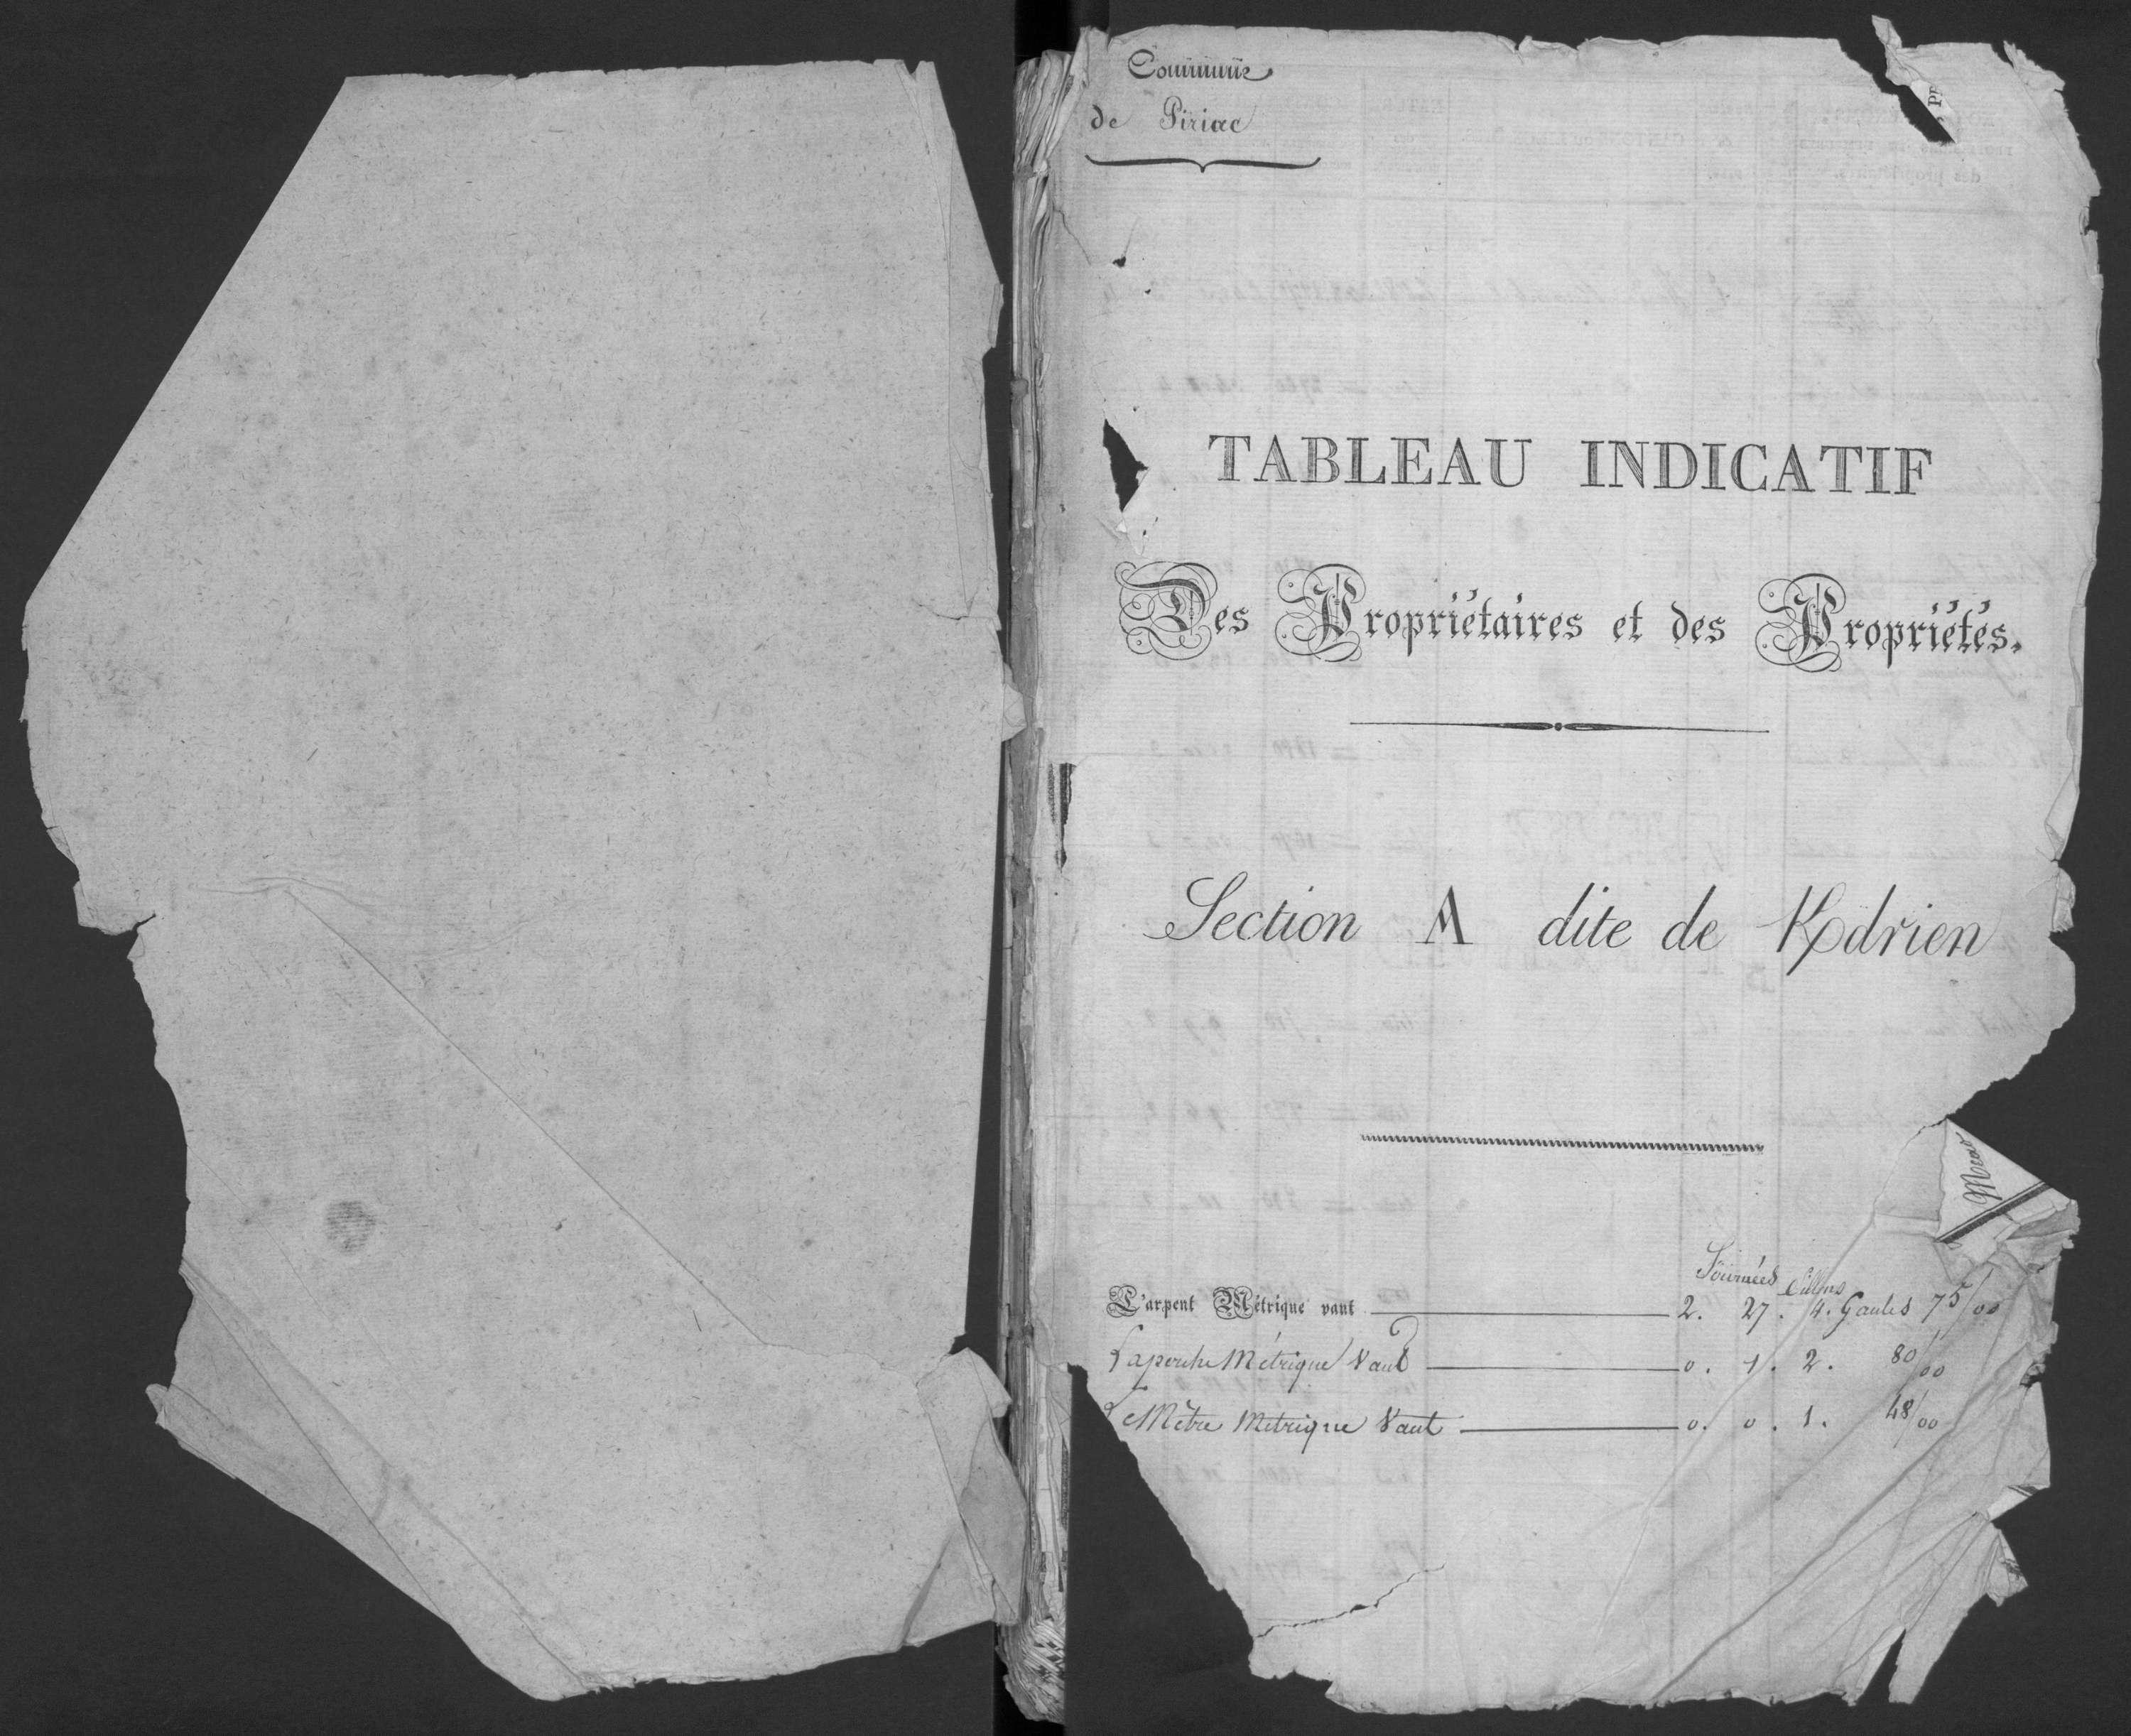 Commune
de Piriac
TABLEAU INDICATIF
Des Propriétaires et des Propriétés.
Section A dite de Kdrien
Journées Sillons
L'arpent Métrique vaut 2. 27. 4. Gaules 75/00
La perche Métrique Vaut 0. 1. 2. 80/00
Le Mètre Metrique Vaut 0. 0. 1. 48/00